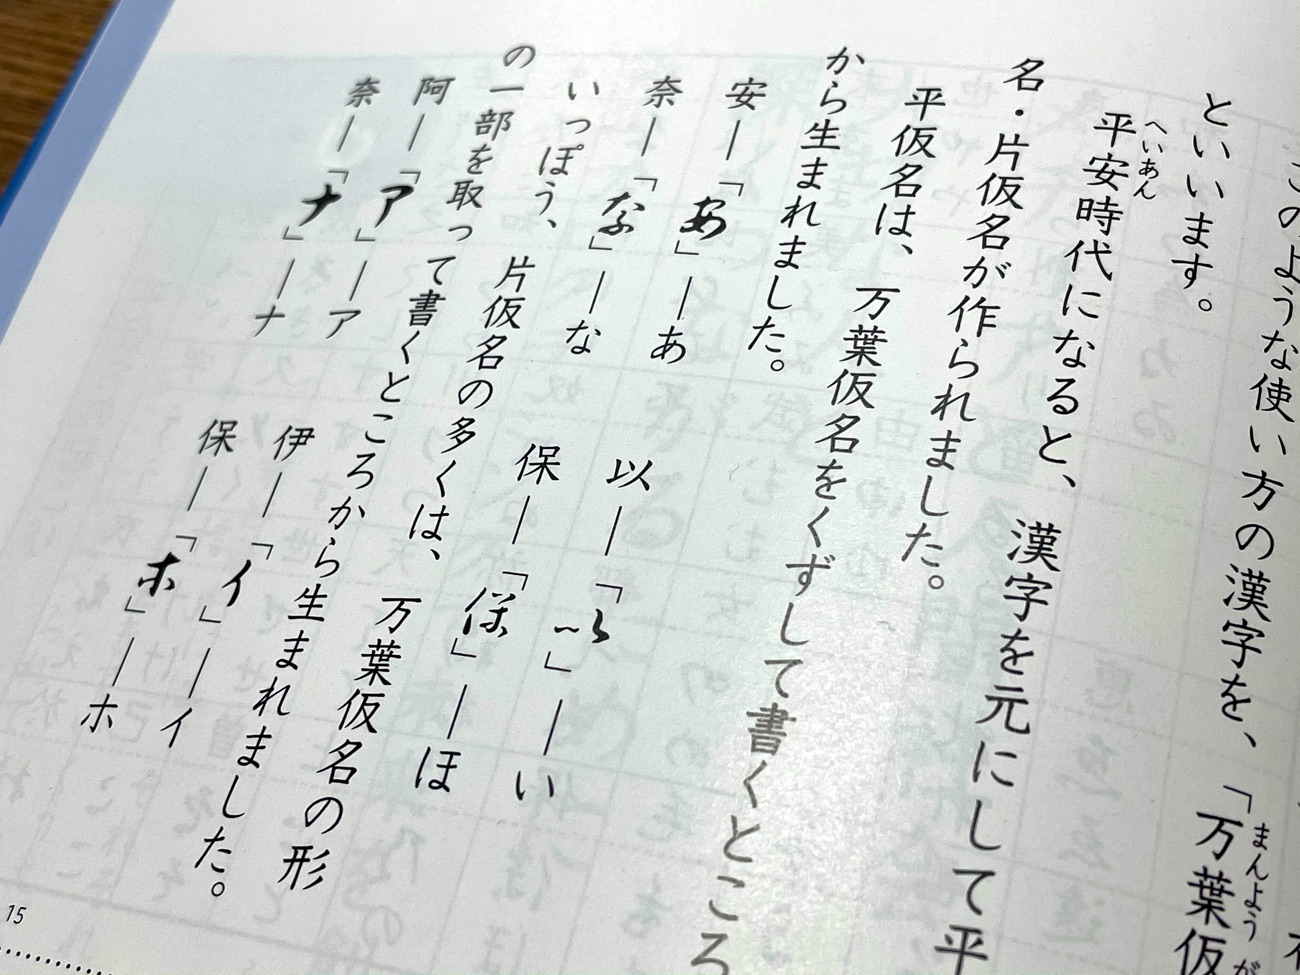 このような使い方の漢字を、「万葉仮
まんようが
といいます。
へいあん
平安時代になると、漢字を元にして平
名・片仮名が作られました。
平仮名は、万葉仮名をくずして書くところ
から生まれました。
安―「あ」―あ
以―「い」―い
奈―「な」―な
保―「ほ」―ほ
いっぽう、片仮名の多くは、万葉仮名の形
の一部を取って書くところから生まれました。
阿―「ア」―ア
伊―「イ」―イ
奈―「ナ」―ナ
保―「ホ」―ホ
15